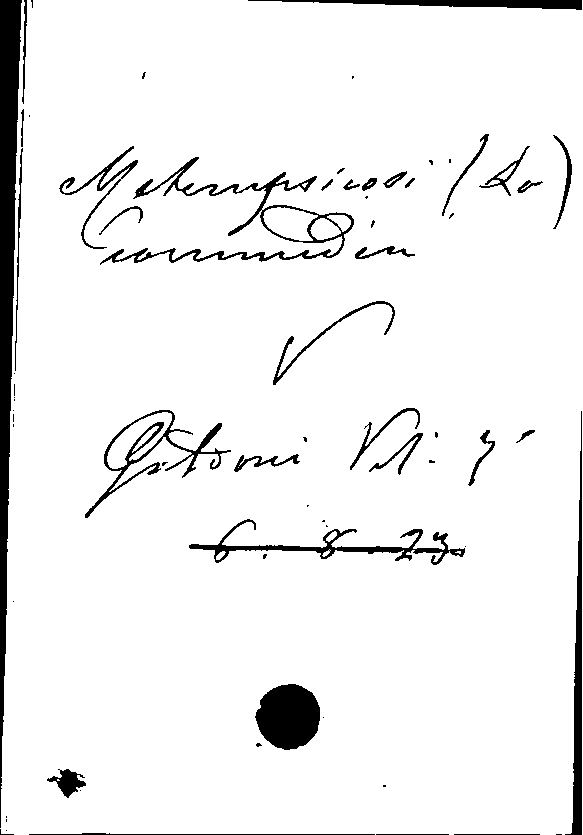 Metempsicosi (La)
Commedia
V
Goldoni Vol: 7°
6. 8. 23.